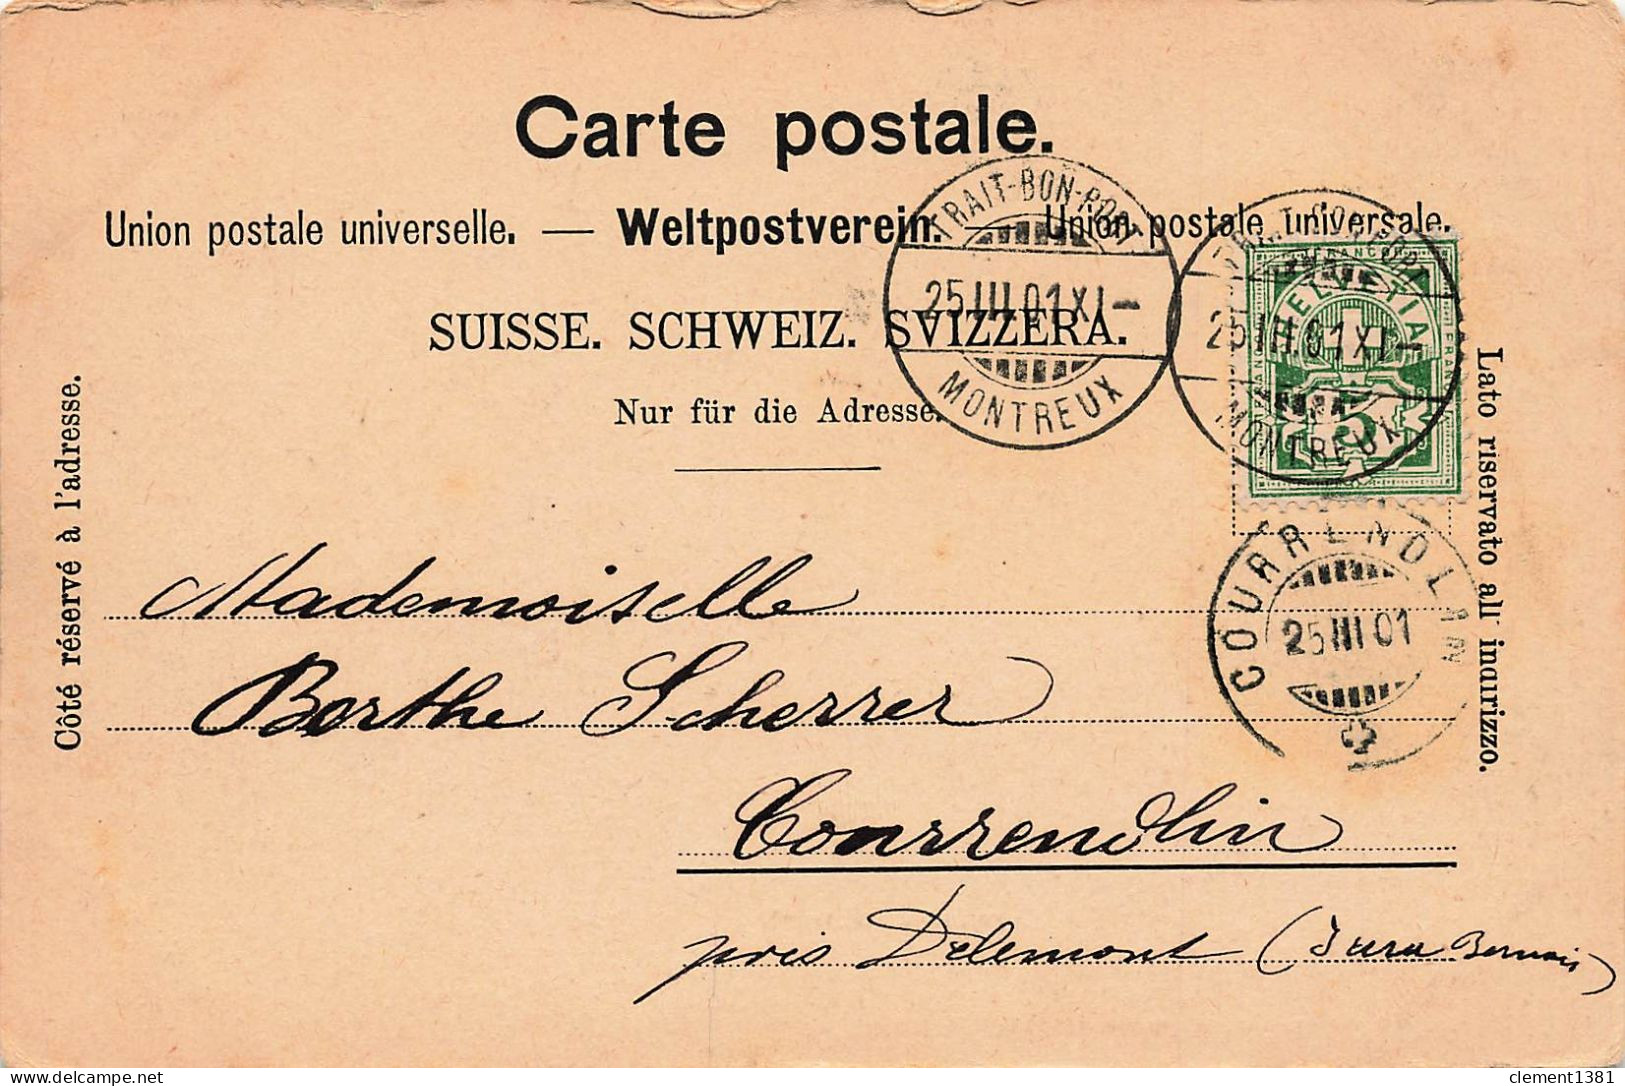 Carte postale.
Union postale universelle. — Weltpostverein. — Union postale universale.
SUISSE. SCHWEIZ. SVIZZERA.
Nur für die Adresse.
Côté réservé à l'adresse.
Lato riservato all' indirizzo.
TRAIT-BON-PORT
25 III.01 XI—
MONTREUX
25 III.01 XI—
MONTREUX
FRANCO
HELVETIA
5
COURRENDLIN
25 III 01
Mademoiselle
Berthe Scherrer
Courrendlin
près Delemont (Jura Bernois)
clement1381